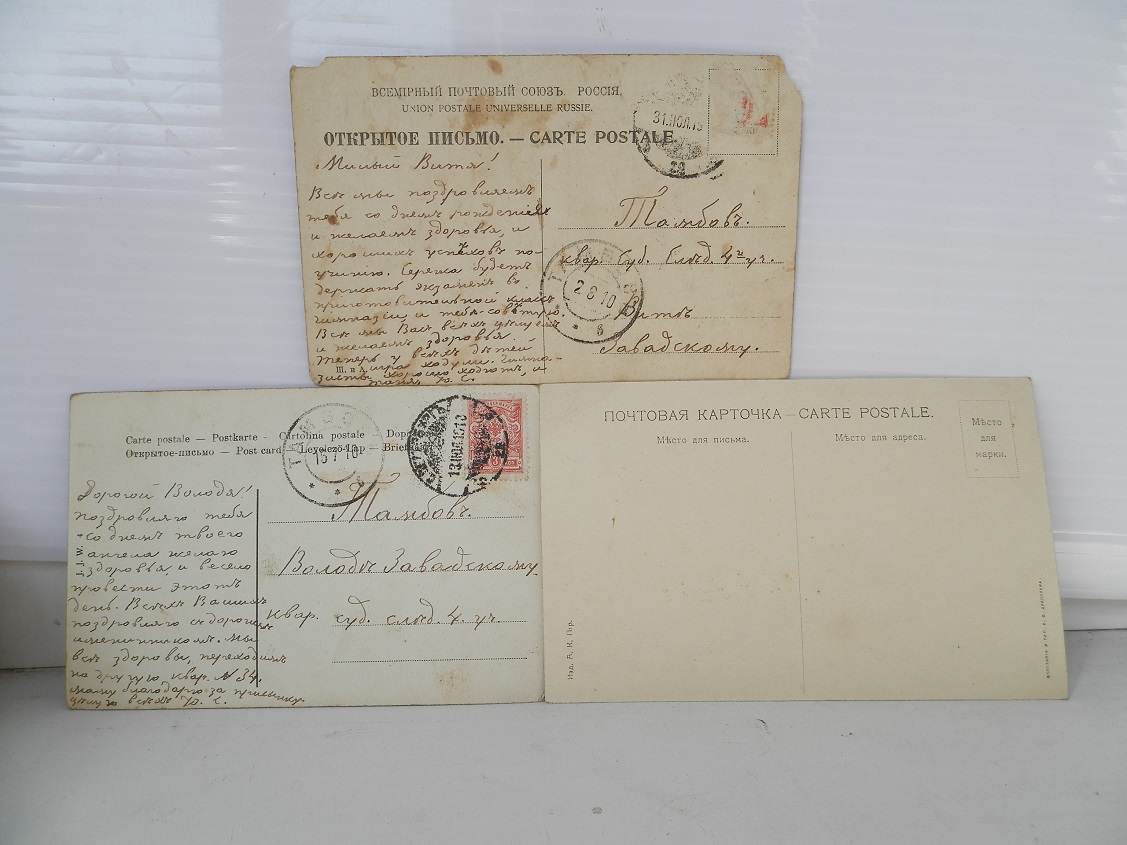 ВСЕМІРНЫЙ ПОЧТОВЫЙ СОЮЗЪ. РОССІЯ.
UNION POSTALE UNIVERSELLE RUSSIE.
ОТКРЫТОЕ ПИСЬМО. — CARTE POSTALE.
31.ІЮЛ.10
Милый Витя!
Всѣ мы поздровляемъ
тебя со днемъ рожденія
и желаемъ здоровья, и
хорошихъ успѣховъ по-
ученію. Сережа будетъ
держать экзаменъ въ
приготовительной классъ
гимназіи и тебѣ совѣтую.
Всѣ мы Васъ всѣхъ цѣлуемъ
и желаемъ здоровья.
Теперь у всѣхъ дѣтей
игра ходули. Гимна-
зисты хорошо ходятъ, и
Таня. Ю. С.
Ш. и А.
Тамбовъ.
квар. Суд. Слѣд. 4й уч.
Витѣ
Завадскому.
ТАМБОВЪ
2 8 10
Carte postale — Postkarte - Cartolina postale —
Открытое-письмо — Post card - Levelező-Lap —
ТАМБОВЪ
15 7 10
13ІЮЛ.1910
Дорогой Володя!
поздровляю тебя
со днемъ твоего
ангела желаю
здоровья, и весело
провести этотъ
день. Всѣхъ Вашихъ
поздровляю съ дорогимъ
именинникомъ. Мы
всѣ здоровы, переходимъ
на другую квар. № 34.
маму благодарю за
цѣлую всѣхъ Ю. С.
J. J. W.
Тамбовъ.
Володѣ Завадскому
квар. суд. слѣд. 4. уч.
ПОЧТОВАЯ КАРТОЧКА — CARTE POSTALE.
Мѣсто для письма.
Мѣсто для адреса.
Мѣсто
для
марки.
Изд. А. К. Гор.